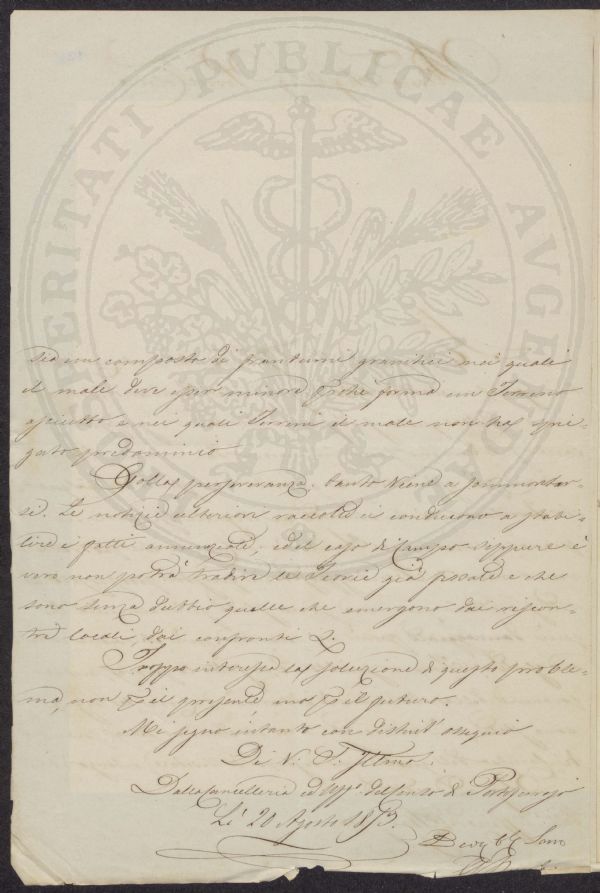 PROSPERITATI PVBLICAE AVGENDAE
sia un composto di frantumi granitici nei quali
il male deve esser minore perchè forma un Terreno
asciutto e nei quali Terreni il male non ha spie-
gato predominio
Colla perseveranza tanto viene a sormontar-
si. Le notizie ulteriori raccolte ci conducono a stabi-
lire i fatti annunziati, ed il caso di Campo seppure è
vero non potrà tradire le Teorie già fissate e che
sono senza dubbio quelle che emergono dai riscon-
tri locali, dai confronti &.
Troppo interessa la soluzione di questo proble-
ma, non per il presente, ma per il futuro.
Mi segno intanto con distint.° ossequio
Di V. S. Illma.
Dalla Cancelleria ed Uff.° del Censo di Portoferrajo
Li 20 Agosto 1853.
Devmo